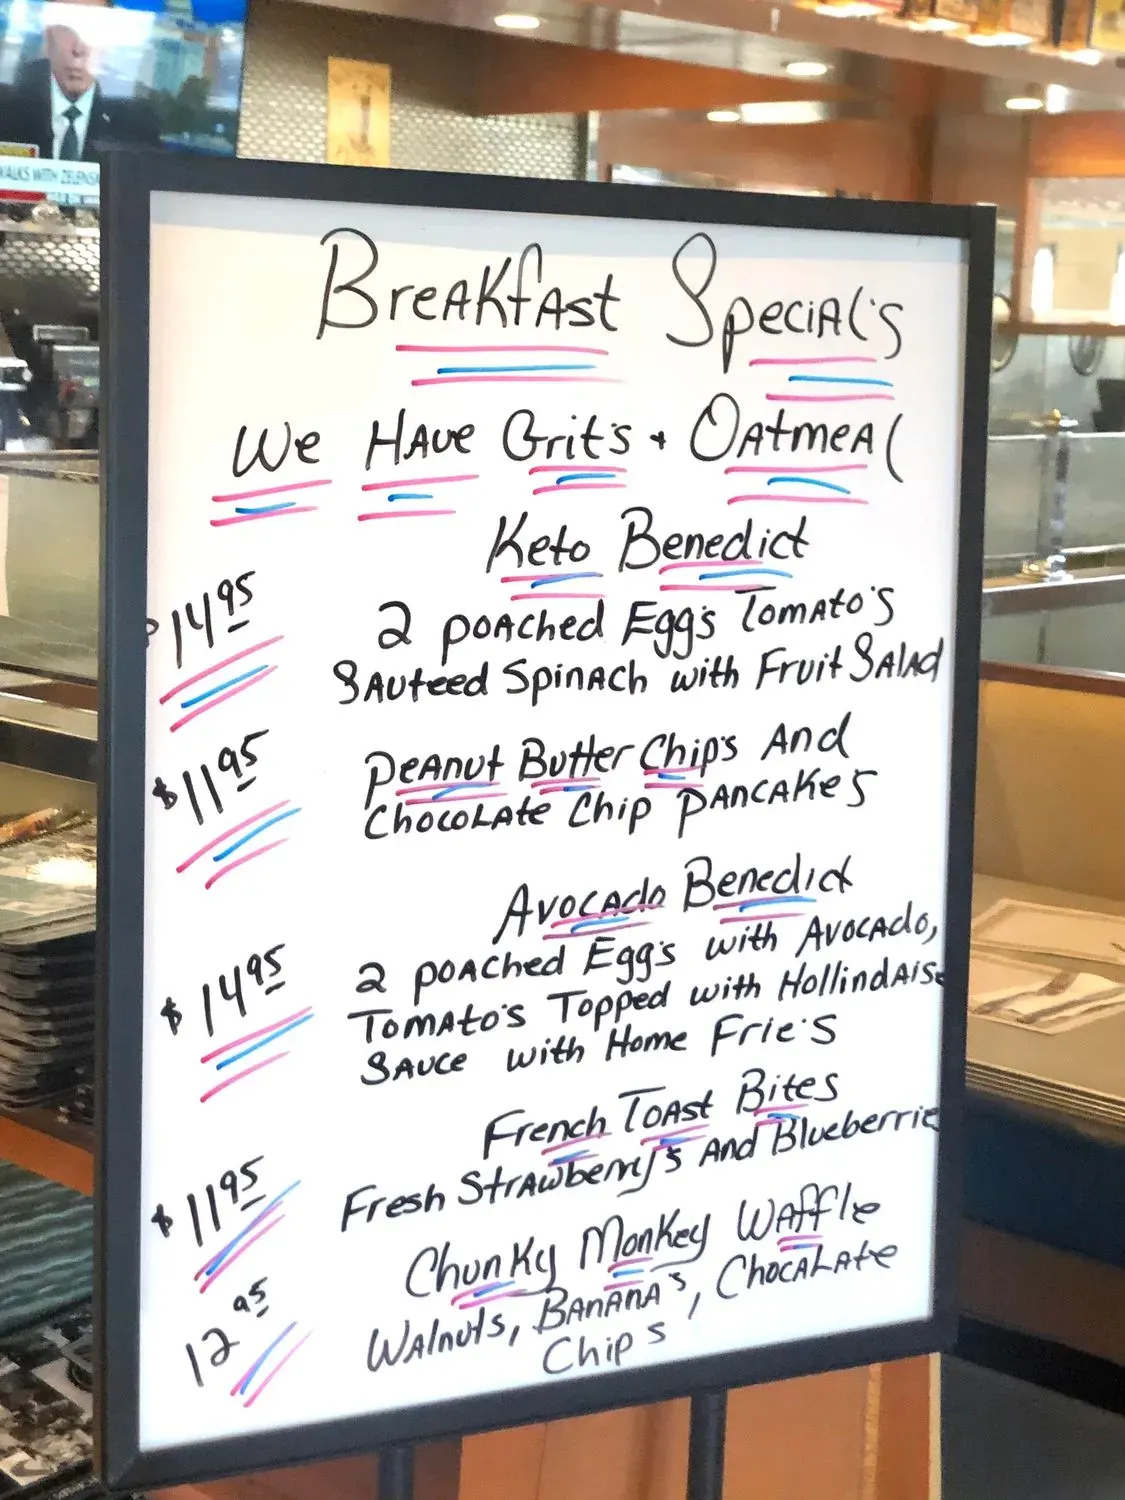 WALKS WITH ZELENSK
Breakfast Special's
We Have Grit's + Oatmeal
Keto Benedict
$14.95
2 poached Egg's Tomato's
Sauteed Spinach with Fruit Salad
$11.95
Peanut Butter Chip's And
Chocolate Chip Pancake's
Avocado Benedict
$14.95
2 poached Egg's with Avocado,
Tomato's Topped with Hollindaise
Sauce with Home Frie's
French Toast Bites
$11.95
Fresh Strawberry's And Blueberrie
Chunky Monkey Waffle
12.95
Walnuts, Banana's, Chocalate
Chips